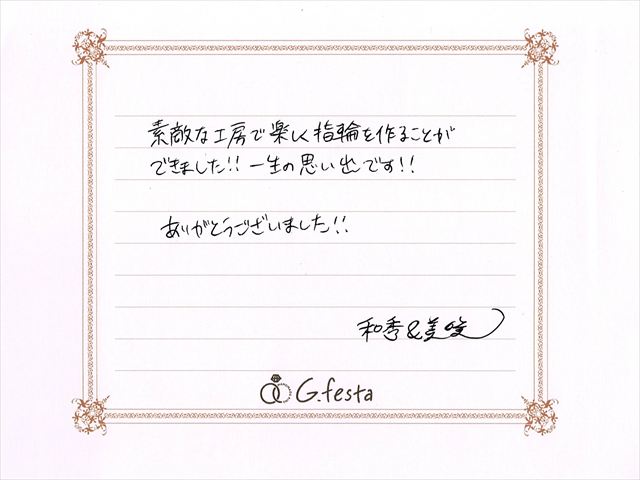 素敵な工房で楽しく指輪を作ることが
できました!! 一生の思い出です!!
ありがとうございました!!
和秀&美咲
G.festa